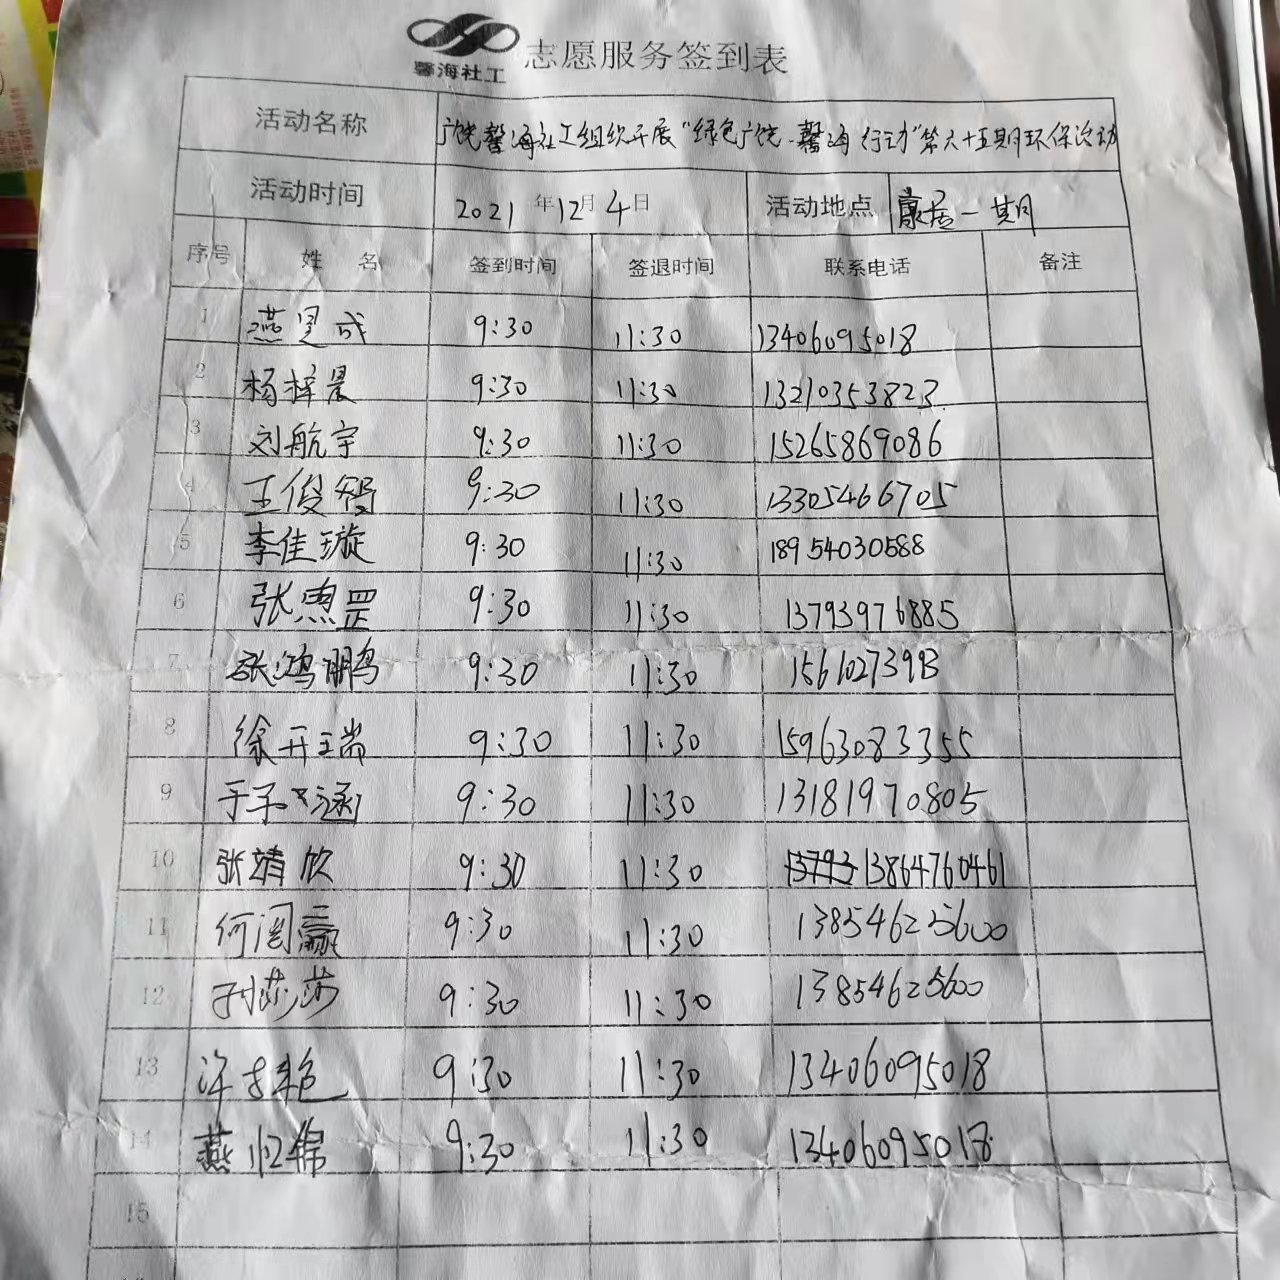 馨海社工 志愿服务签到表
活动名称 广饶馨海社工组织开展“绿色广饶·馨海行动”第六十五期环保活动
活动时间 2021年12月4日 活动地点 康居一期
序号 姓名 签到时间 签退时间 联系电话 备注
1 燕昱成 9:30 11:30 13406095018
2 杨梓晨 9:30 11:30 13210353823
3 刘航宇 9:30 11:30 15265869086
4 王俊智 9:30 11:30 13305466705
5 李佳璇 9:30 11:30 18954030588
6 张惠罡 9:30 11:30 13793976885
7 张鸿鹏 9:30 11:30
8 徐开瑞 9:30 11:30 15963083355
9 于子涵 9:30 11:30 13181970805
10 张靖欣 9:30 11:30 13793 13864760461
11 何 9:30 11:30 13854625600
12 孙莎莎 9:30 11:30 13854625600
13 许艳 9:30 11:30 13406095018
14 燕 9:30 11:30 13406095018
15